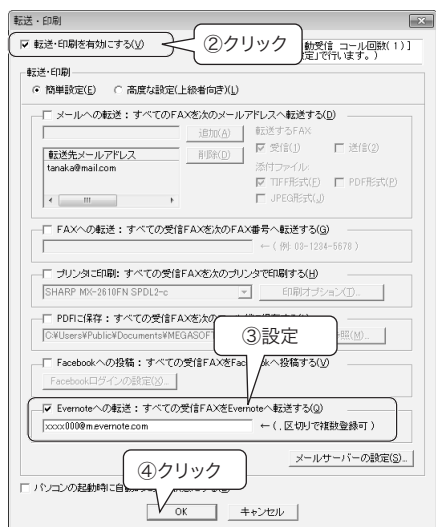 転送・印刷
転送・印刷を有効にする(V)
②クリック
動受信 コール回数(1)]
定」で行います。)
転送・印刷
簡単設定(E) 高度な設定(上級者向き)(L)
メールへの転送：すべてのFAXを次のメールアドレスへ転送する(D)
追加(A) 転送するFAX:
転送先メールアドレス 削除(C) 受信(1) 送信(2)
tanaka@mail.com 添付ファイル:
TIFF形式(F) PDF形式(P)
JPEG形式(J)
FAXへの転送：すべての受信FAXを次のFAX番号へ転送する(G)
←(例: 03-1234-5678)
プリンタに印刷: すべての受信FAXを次のプリンタで印刷する(H)
SHARP MX-2610FN SPDL2-c 印刷オプション(T)...
PDFに保存：すべての受信FAXを次の
C:¥Users¥Public¥Documents¥MEGASOFT (M)...
③設定
Facebookへの投稿：すべての受信FAXをFacebookへ投稿する(Y)
Facebookログインの設定(X)...
Evernoteへの転送：すべての受信FAXをEvernoteへ転送する(Q)
xxxx000@m.evernote.com ←( , 区切りで複数登録可 )
④クリック
メールサーバーの設定(S)...
パソコンの起動時に自動
OK キャンセル